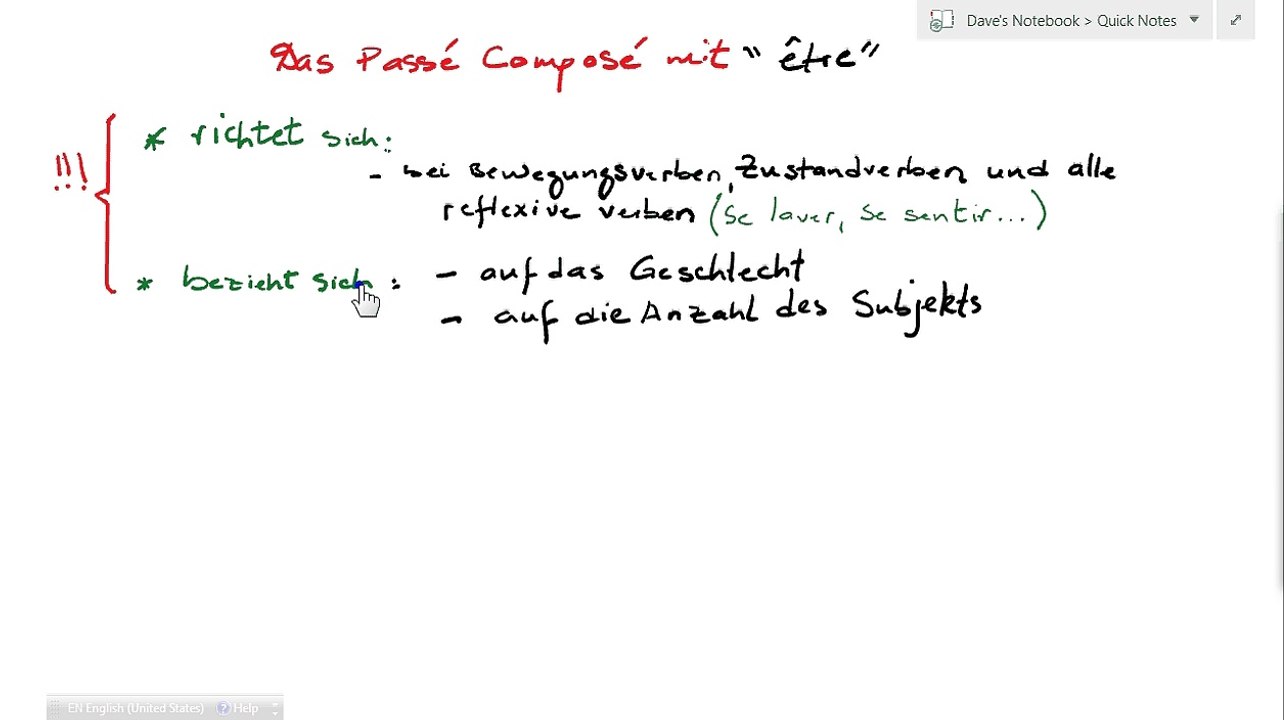 Dave's Notebook > Quick Notes
Das Passé Composé mit "être"
!!!
* richtet sich:
- bei Bewegungsverben, Zustandverben und alle
reflexive verben (se laver, se sentir...)
* bezieht sich : - auf das Geschlecht
- auf die Anzahl des Subjekts
EN English (United States) Help